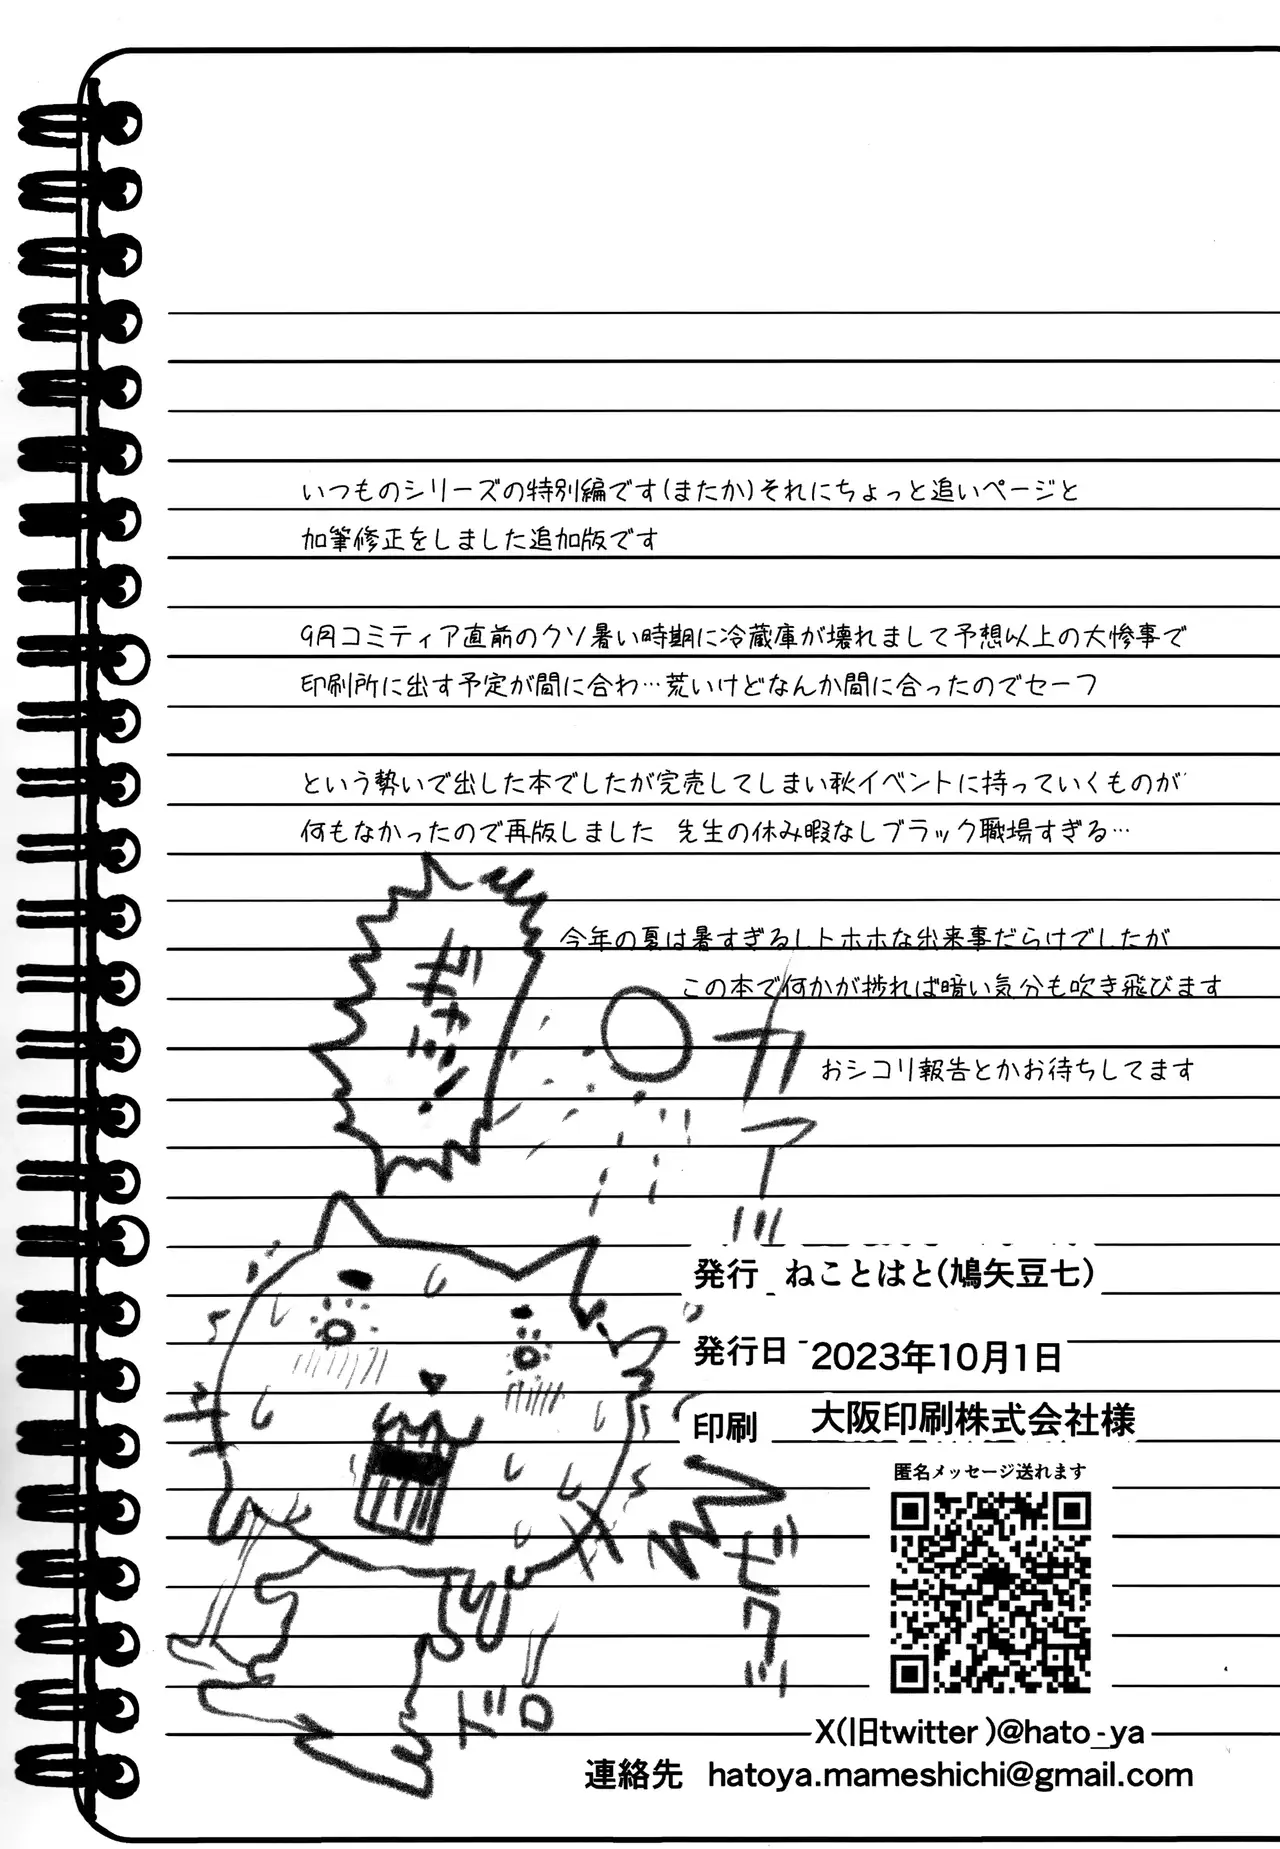 いつものシリーズの特別編です(またか)それにちょっと追いページと
加筆修正をしました追加版です
9月コミティア直前のクソ暑い時期に冷蔵庫が壊れまして予想以上の大惨事で
印刷所に出す予定が間に合わ…荒いけどなんか間に合ったのでセーフ
という勢いで出した本でしたが完売してしまい秋イベントに持っていくものが
何もなかったので再版しました 先生の休み暇なしブラック職場すぎる…
今年の夏は暑すぎるしトホホな出来事だらけでしたが
この本で何かが捗れば暗い気分も吹き飛びます
おシコリ報告とかお待ちしてます
発行 ねことはと(鳩矢豆七)
発行日 2023年10月1日
印刷 大阪印刷株式会社様
匿名メッセージ送れます
ドロ
X(旧twitter)@hato_ya
連絡先 hatoya.mameshichi@gmail.com